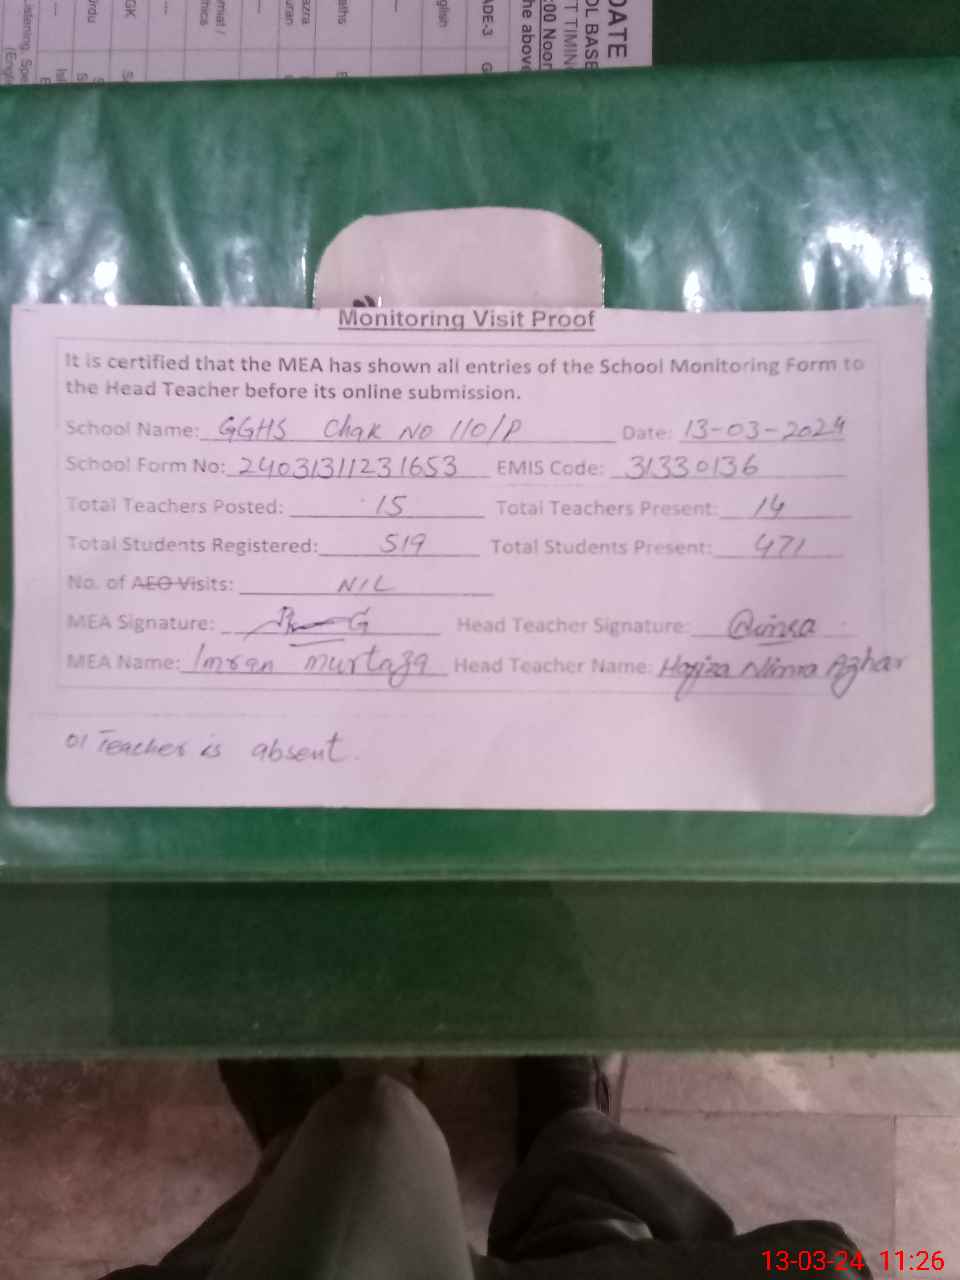 DATE
OL BASE
T TIMIN
:00 Noon
he above
ADE-3
G
nglish
---
aths
E
azra
uran
miat /
hics
---
GK
S
Urdu
S
---
Isl
Listening, Spe
(Engl
Monitoring Visit Proof
It is certified that the MEA has shown all entries of the School Monitoring Form to
the Head Teacher before its online submission.
School Name: GGHS Chak No 110/P Date: 13-03-2024
School Form No: 24031311231653 EMIS Code: 31330136
Total Teachers Posted: 15 Total Teachers Present: 14
Total Students Registered: 519 Total Students Present: 471
No. of AEO Visits: NIL
MEA Signature: Head Teacher Signature:
MEA Name: Imran murtaza Head Teacher Name: Nimra Azhar
01 Teacher is absent.
13-03-24 11:26